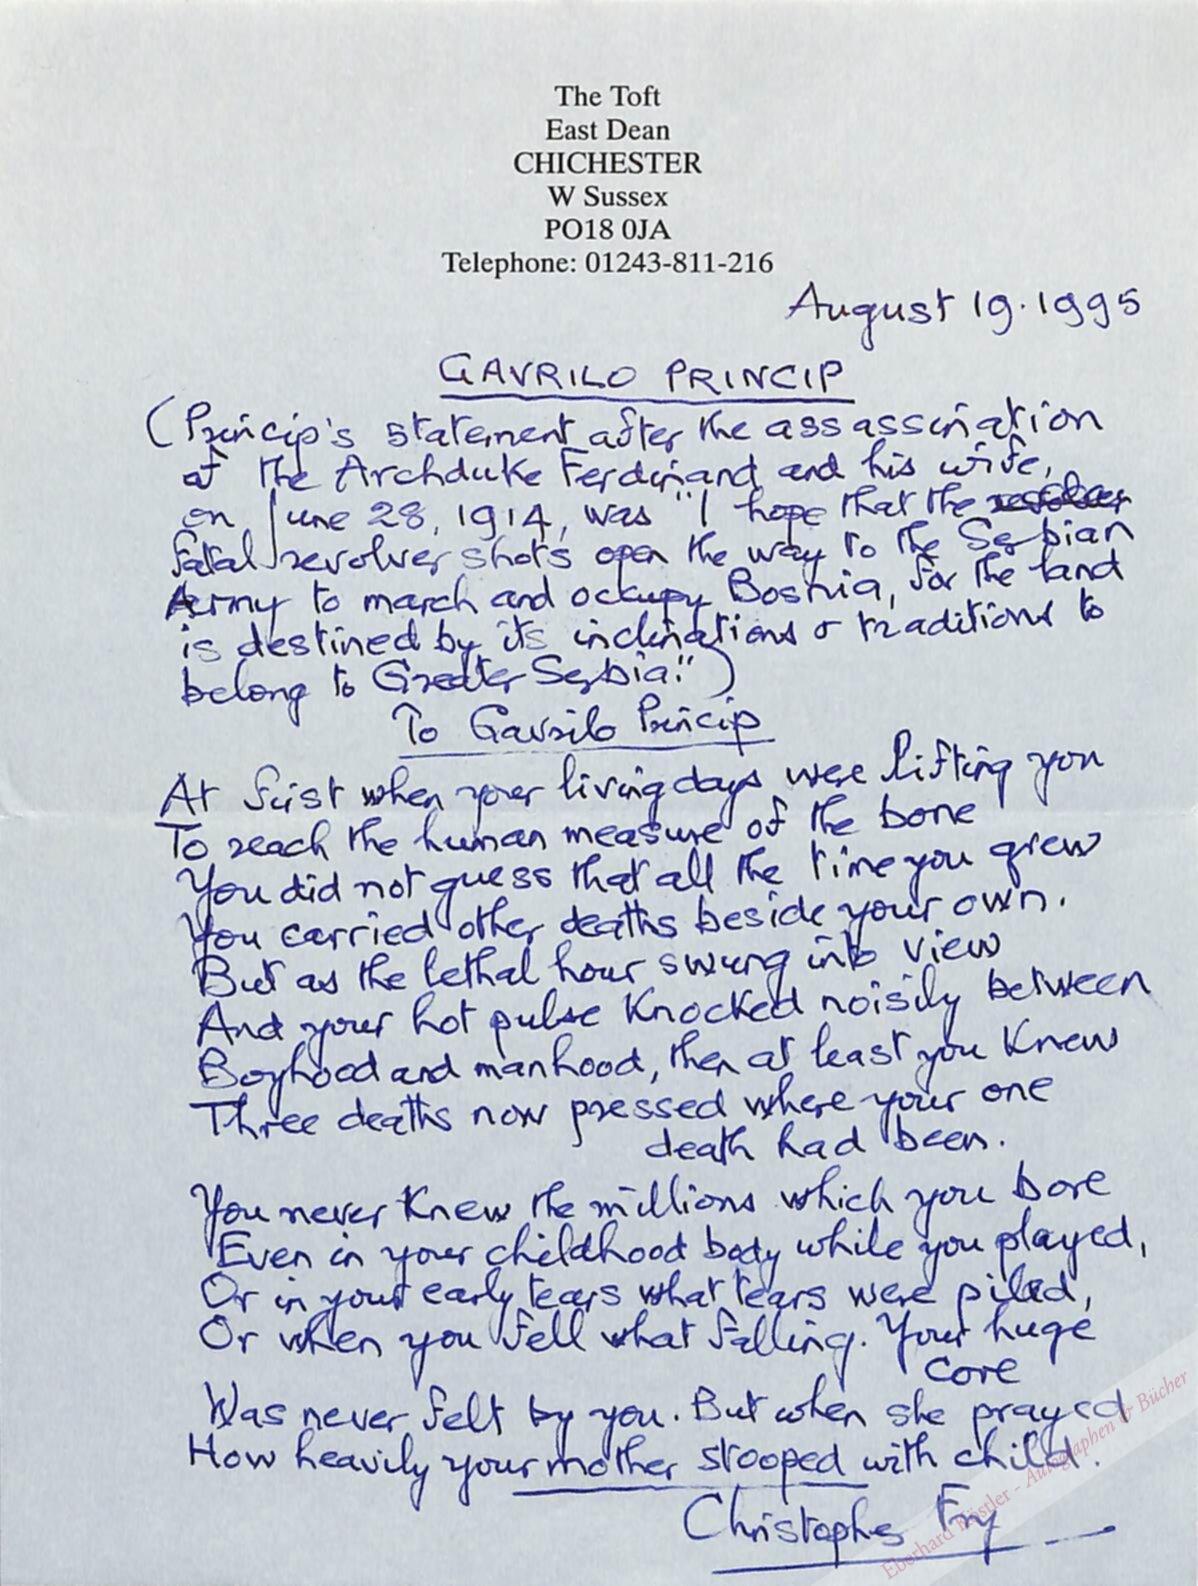 The Toft
East Dean
CHICHESTER
W Sussex
PO18 0JA
Telephone: 01243-811-216
August 19. 1995
GAVRILO PRINCIP
(Princip's statement after the assassination
of the Archduke Ferdinand and his wife,
on June 28, 1914, was "I hope that the
fatal revolver shots open the way to the Serbian
Army to march and occupy Bosnia, for the land
is destined by its inclinations & traditions to
belong to Greater Serbia.")
To Gavrilo Princip
At first when your living days were lifting you
To reach the human measure of the bone
You did not guess that all the time you grew
You carried other deaths beside your own.
But as the lethal hour swung into view
And your hot pulse knocked noisily between
Boyhood and manhood, then at least you knew
Three deaths now pressed where your one
death had been.
You never knew the millions which you bore
Even in your childhood body while you played,
Or in your early tears what tears were piled,
Or when you fell what falling. Your huge
core
Was never felt by you. But when she prayed
How heavily your mother stooped with child.
Christopher Fry
Eberhard Köstler - Autographen & Bücher